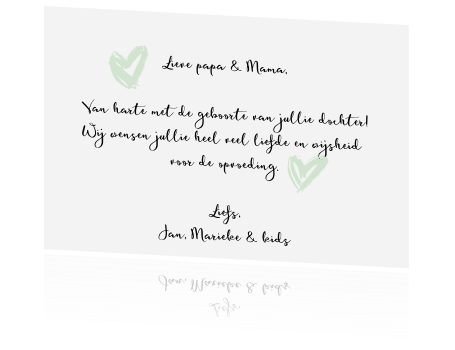 Lieve papa & Mama,
Van harte met de geboorte van jullie dochter!
Wij wensen jullie heel veel liefde en wijsheid
voor de opvoeding.
Liefs,
Jan, Marieke & kids